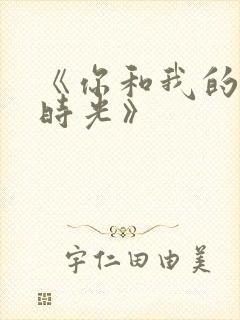 《你和我的
時光》
宇仁田由美